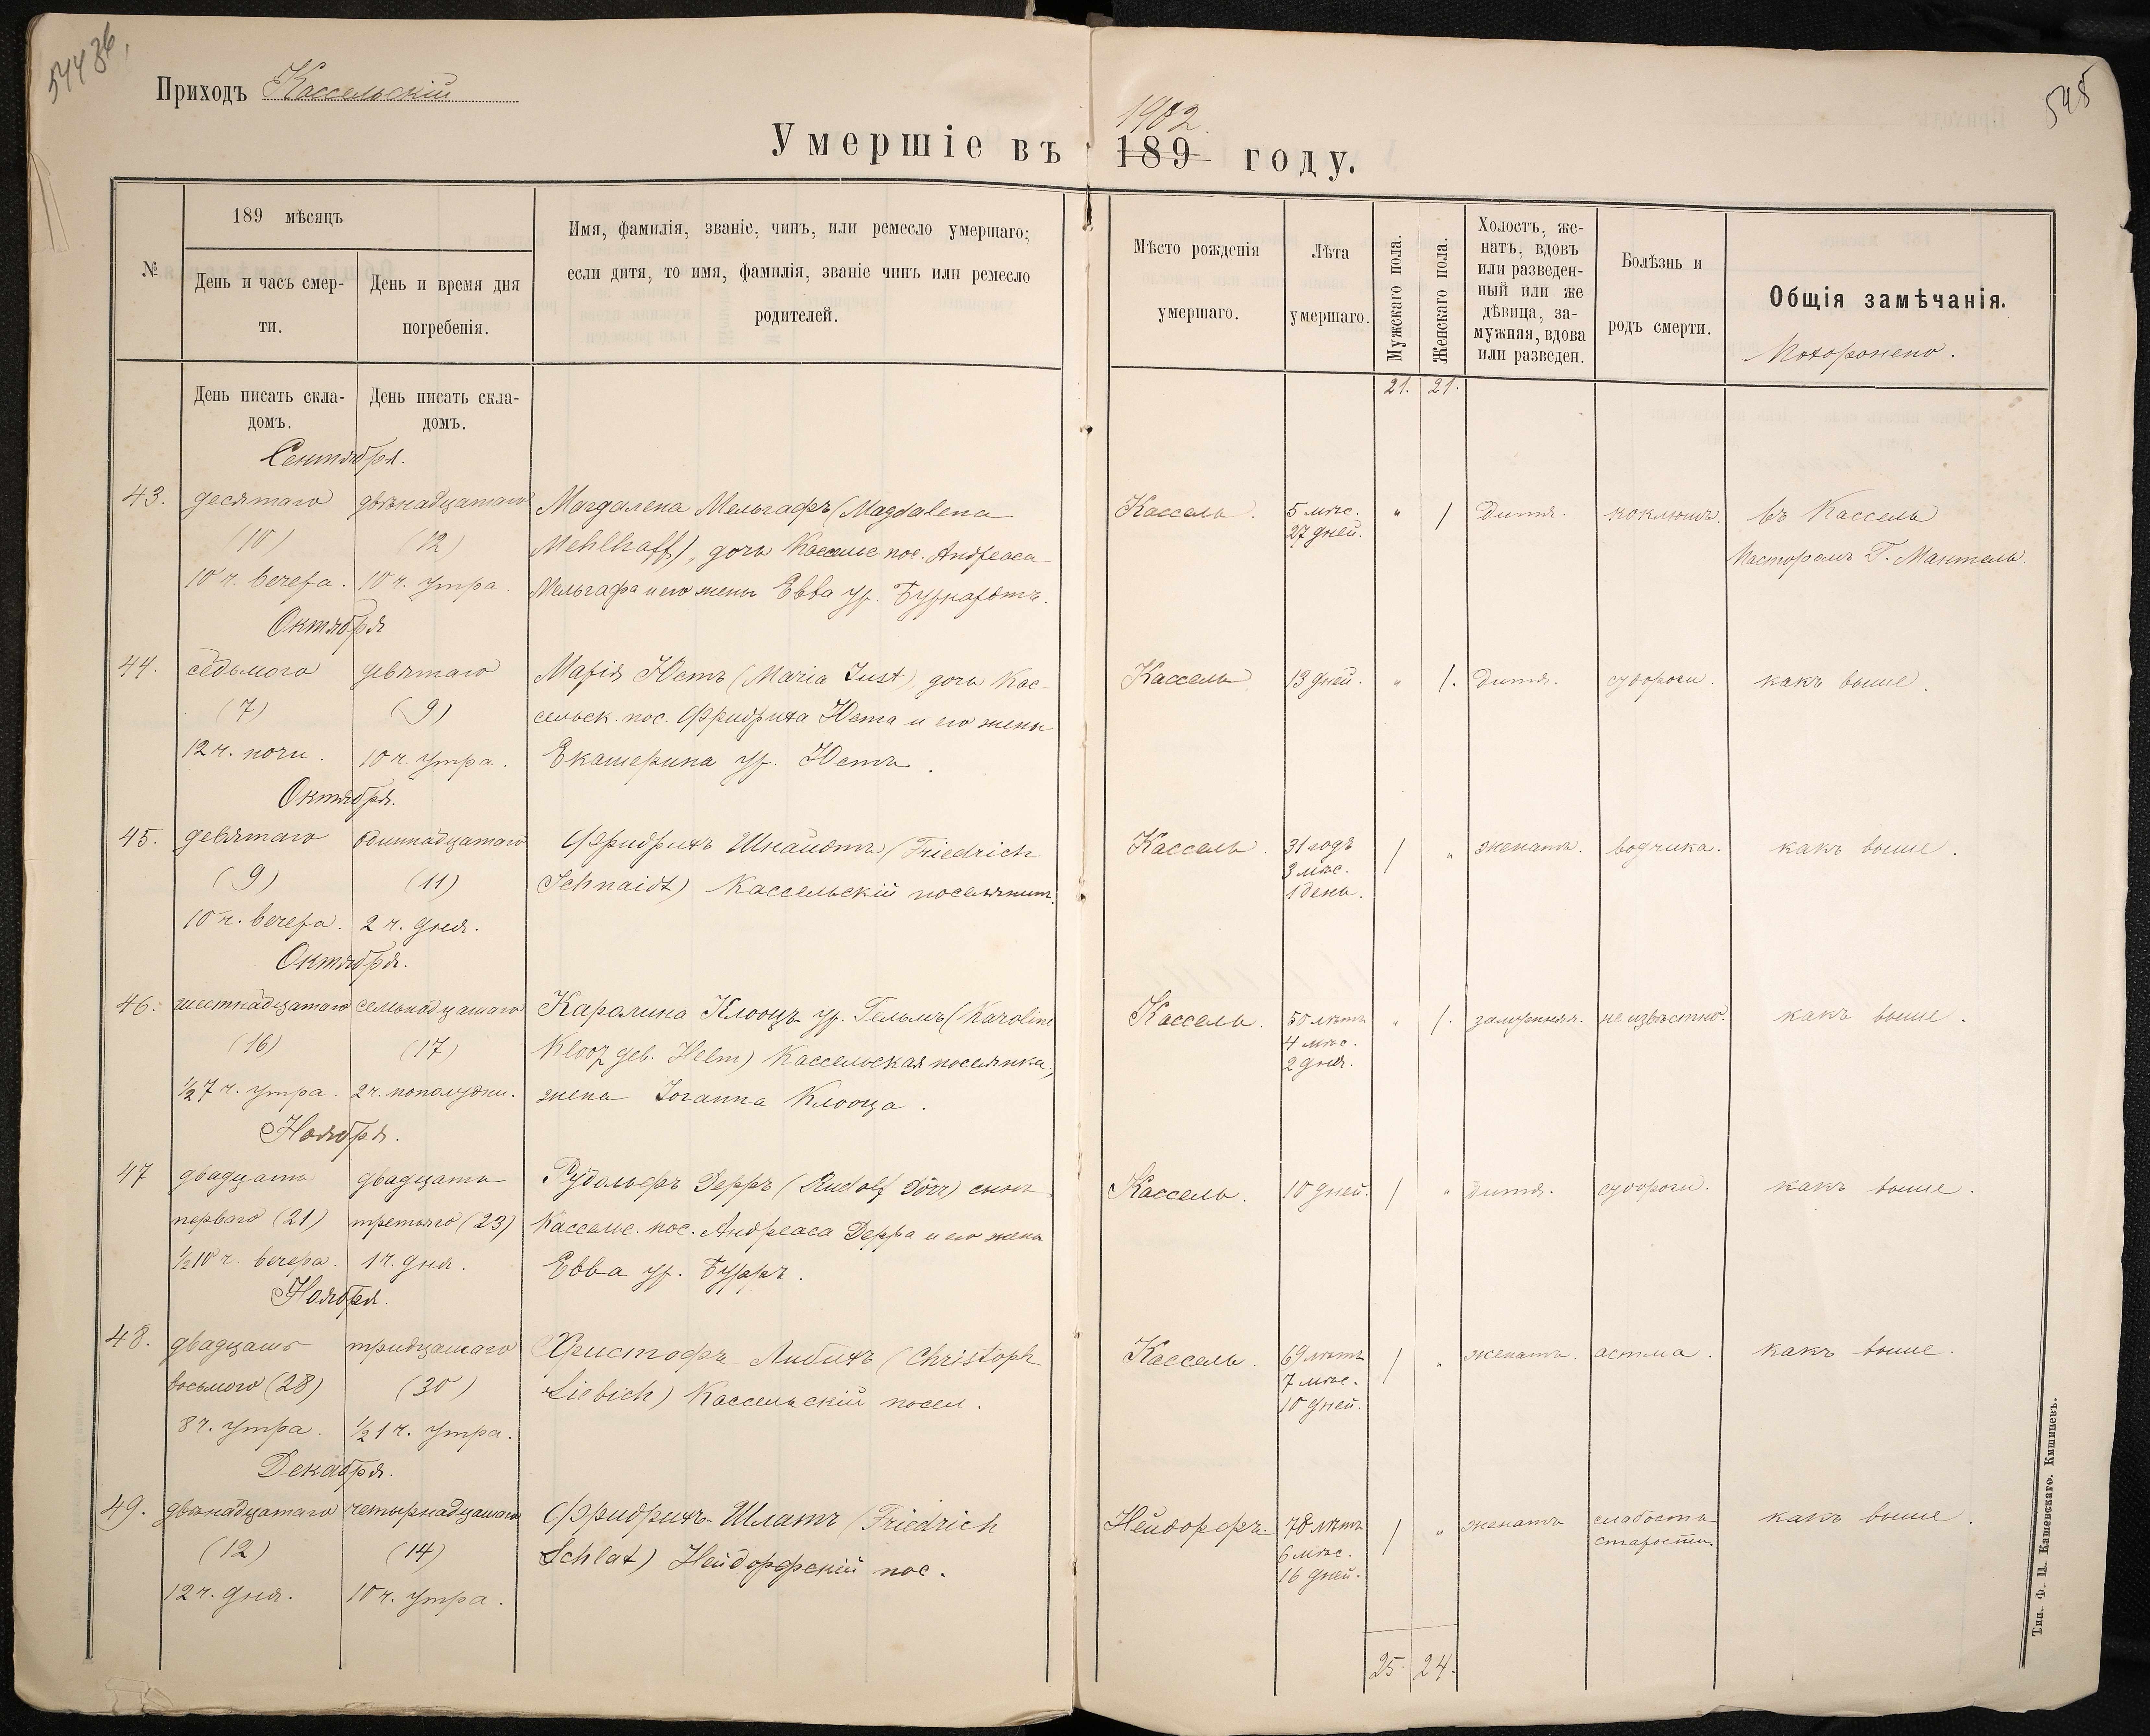 544 36
Приходъ Кассельскій
545
1902.
Умершіе въ 189 году.
№
189 мѣсяцъ
День и часъ смер-
ти.
День и время дня
погребенія.
Имя, фамилія, званіе, чинъ, или ремесло умершаго;
если дитя, то имя, фамилія, званіе чинъ или ремесло
родителей.
Мѣсто рожденія
умершаго.
Лѣта
умершаго.
Мужскаго пола.
Женскаго пола.
Холостъ, же-
натъ, вдовъ
или разведен-
ный или же
дѣвица, за-
мужняя, вдова
или разведен.
Болѣзнь и
родъ смерти.
Общія замѣчанія.
Похоронено.
День писать скла-
домъ.
День писать скла-
домъ.
21. 21.
Сентября.
43. десятаго
(10)
10 ч. вечера.
двѣнадцатаго
(12)
10 ч. утра.
Магдалена Мельгафъ (Magdalena
Mehlhaff), дочь Кассельс пос. Андреаса
Мельгафа и его жены Евва ур.
Кассель.
5 мѣс.
27 дней.
" 1
Дитя.
коклюшъ.
въ Кассель
Пасторомъ Г. Мантель.
Октября
44. седьмого
(7)
12 ч. ночи.
девятаго
(9)
10 ч. утра.
Марія Юстъ (Maria Just) дочь Кас-
сельск. пос. Фридриха Юста и его жены
Екатерина ур. Юстъ.
Кассель
13 дней.
" 1.
Дитя.
судороги.
какъ выше.
Октября.
45. девятаго
(9)
10 ч. вечера.
одиннадцатаго
(11)
2 ч. дня.
Фридрихъ Шнайдтъ (Friedrich
Schnaidt) Кассельскій поселянинъ.
Кассель.
31 годъ
3 мѣс.
1 день.
1 "
женатъ.
водянка.
какъ выше.
Октября.
46. шестнадцатаго
(16)
1/2 7 ч. утра.
семьнадцатаго
(17)
2 ч. пополудни.
Каралина Клооцъ ур. Гельмъ (Karoline
Klooz geb. Helm) Кассельская поселянка,
жена Іоганна Клооца.
Кассель.
50 лѣтъ
4 мѣс.
2 дня.
" 1.
замужняя.
неизвѣстно.
какъ выше.
Ноября.
47 двадцать
перваго (21)
1/2 10 ч. вечера.
двадцать
третьяго (23)
1 ч. дня.
Рудольфъ Дерръ (Rudolf Dörr) сынъ
Кассельс. пос. Андреаса Дерра и его жены
Евва ур. Бурръ.
Кассель.
10 дней.
1 "
дитя.
судороги.
какъ выше.
Ноября.
48. двадцать
восьмого (28)
8 ч. утра.
тридцатаго
(30)
1/2 1 ч. утра.
Христофъ Либихъ (Christoph
Liebich) Кассельскій посел.
Кассель.
69 лѣтъ
7 мѣс.
10 дней.
1 "
женатъ.
астма.
какъ выше.
Декабря.
49. двѣнадцатаго
(12)
12 ч. дня.
четырнадцатаго
(14)
10 ч. утра.
Фридрихъ Шлатъ (Friedrich
Schlat) Нейдорфскій пос.
Нейдорфъ.
78 лѣтъ
6 мѣс.
16 дней.
1 "
женатъ
слабость
старости.
какъ выше.
25. 24.
Тип. Ф. П. Кашевскаго. Кишиневъ.